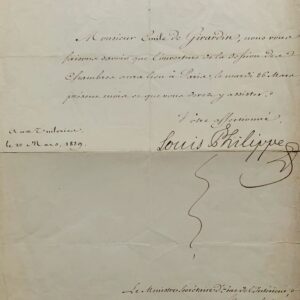 Monsieur Emile de Girardin, nous vous
faisons savoir que l'ouverture de la Session des
Chambres aura lieu à Paris, le mardi 26 Mars
présent mois et que vous devez y assister.
Votre affectionné
Aux Tuileries
le 20 Mars, 1839.
Louis Philippe
Le Ministre Secrétaire d'Etat de l'Intérieur,